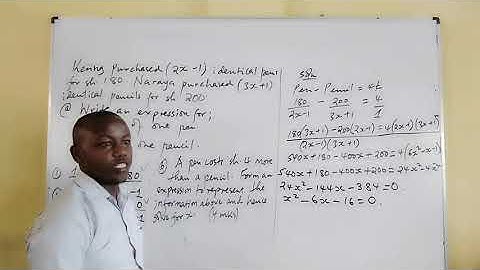 Kenna purchased (2x-1) identical pens
for sh 180. Naraya purchased (3x+1)
identical pencils for sh 200
@ Write an expression for;
one pen
one pencil.
b) A pen costs sh 4 more
than a pencil. Form an
expression to represent the
information above and hence
solve for x (4 mks)
soln
Pen - Pencil = 4
180/2x-1 - 200/3x+1 = 4/1
180(3x+1) - 200(2x-1) = 4(2x-1)(3x+1)
(2x-1)(3x+1)
540x+180-400x+200 = 4(6x²-x-1)
540x+180-400x+200 = 24x²-4x-4
24x²-144x-384=0
x²-6x-16=0